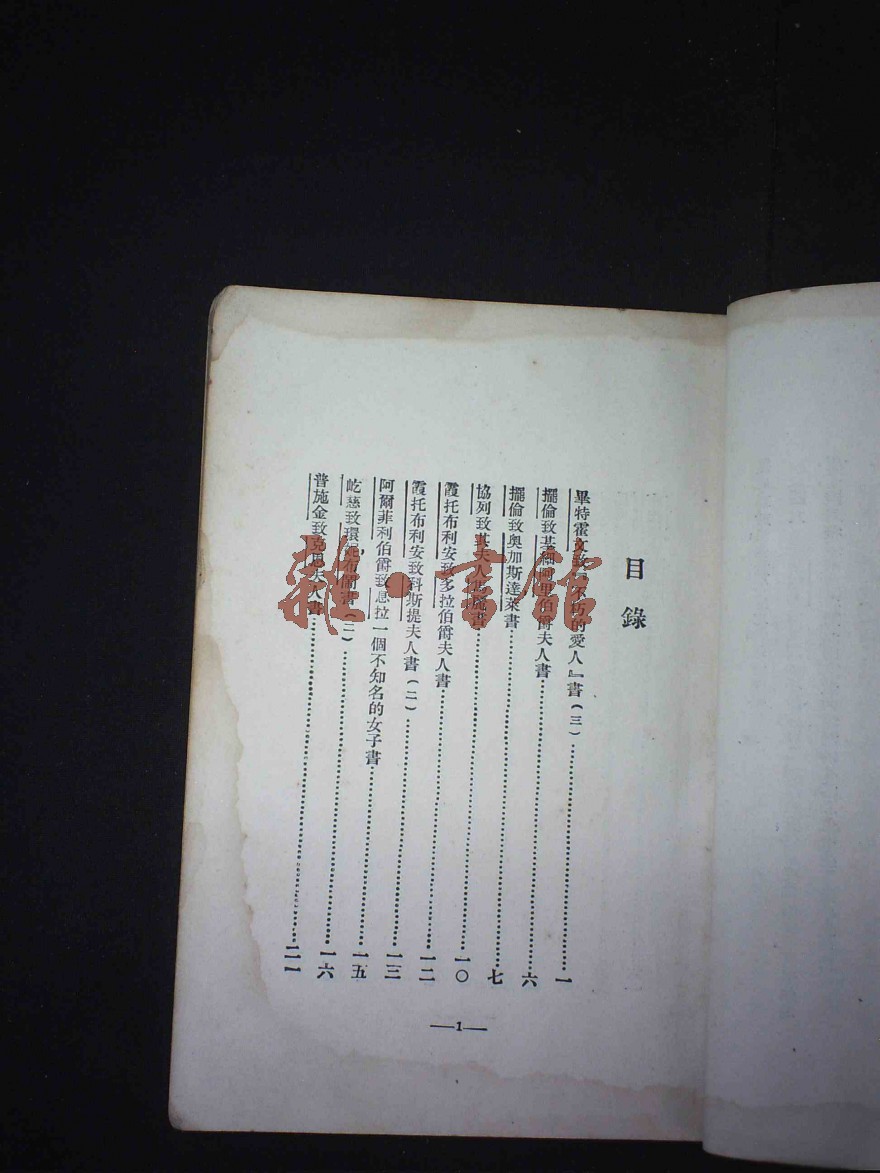 目錄
畢特霍文致『不朽的愛人』書(三)……一
擺倫致基姻阿里伯爵夫人書……六
擺倫致奧加斯達萊書……七
協列致其夫人瑪麗書……一〇
霞托布利安致多拉伯爵夫人書……一二
霞托布利安致科斯提夫人書(二)……一三
阿爾菲利伯爵致息拉一個不知名的女子書……一五
屹慈致環妮布蘭書(二)……一六
普施金致克恩夫人書……二一
—1—
雜·書館